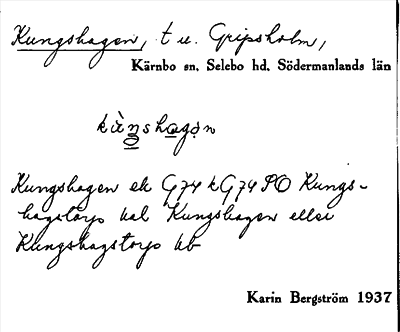 Kungshagen, t u. Gripsholm,
Kärnbo sn, Selebo hd, Södermanlands län
kùŋshagən
Kungshagen ek G74 kG74 SO Kungs-
hagstorp kal Kungshagen eller
Kungshagstorp kb
Karin Bergström 1937